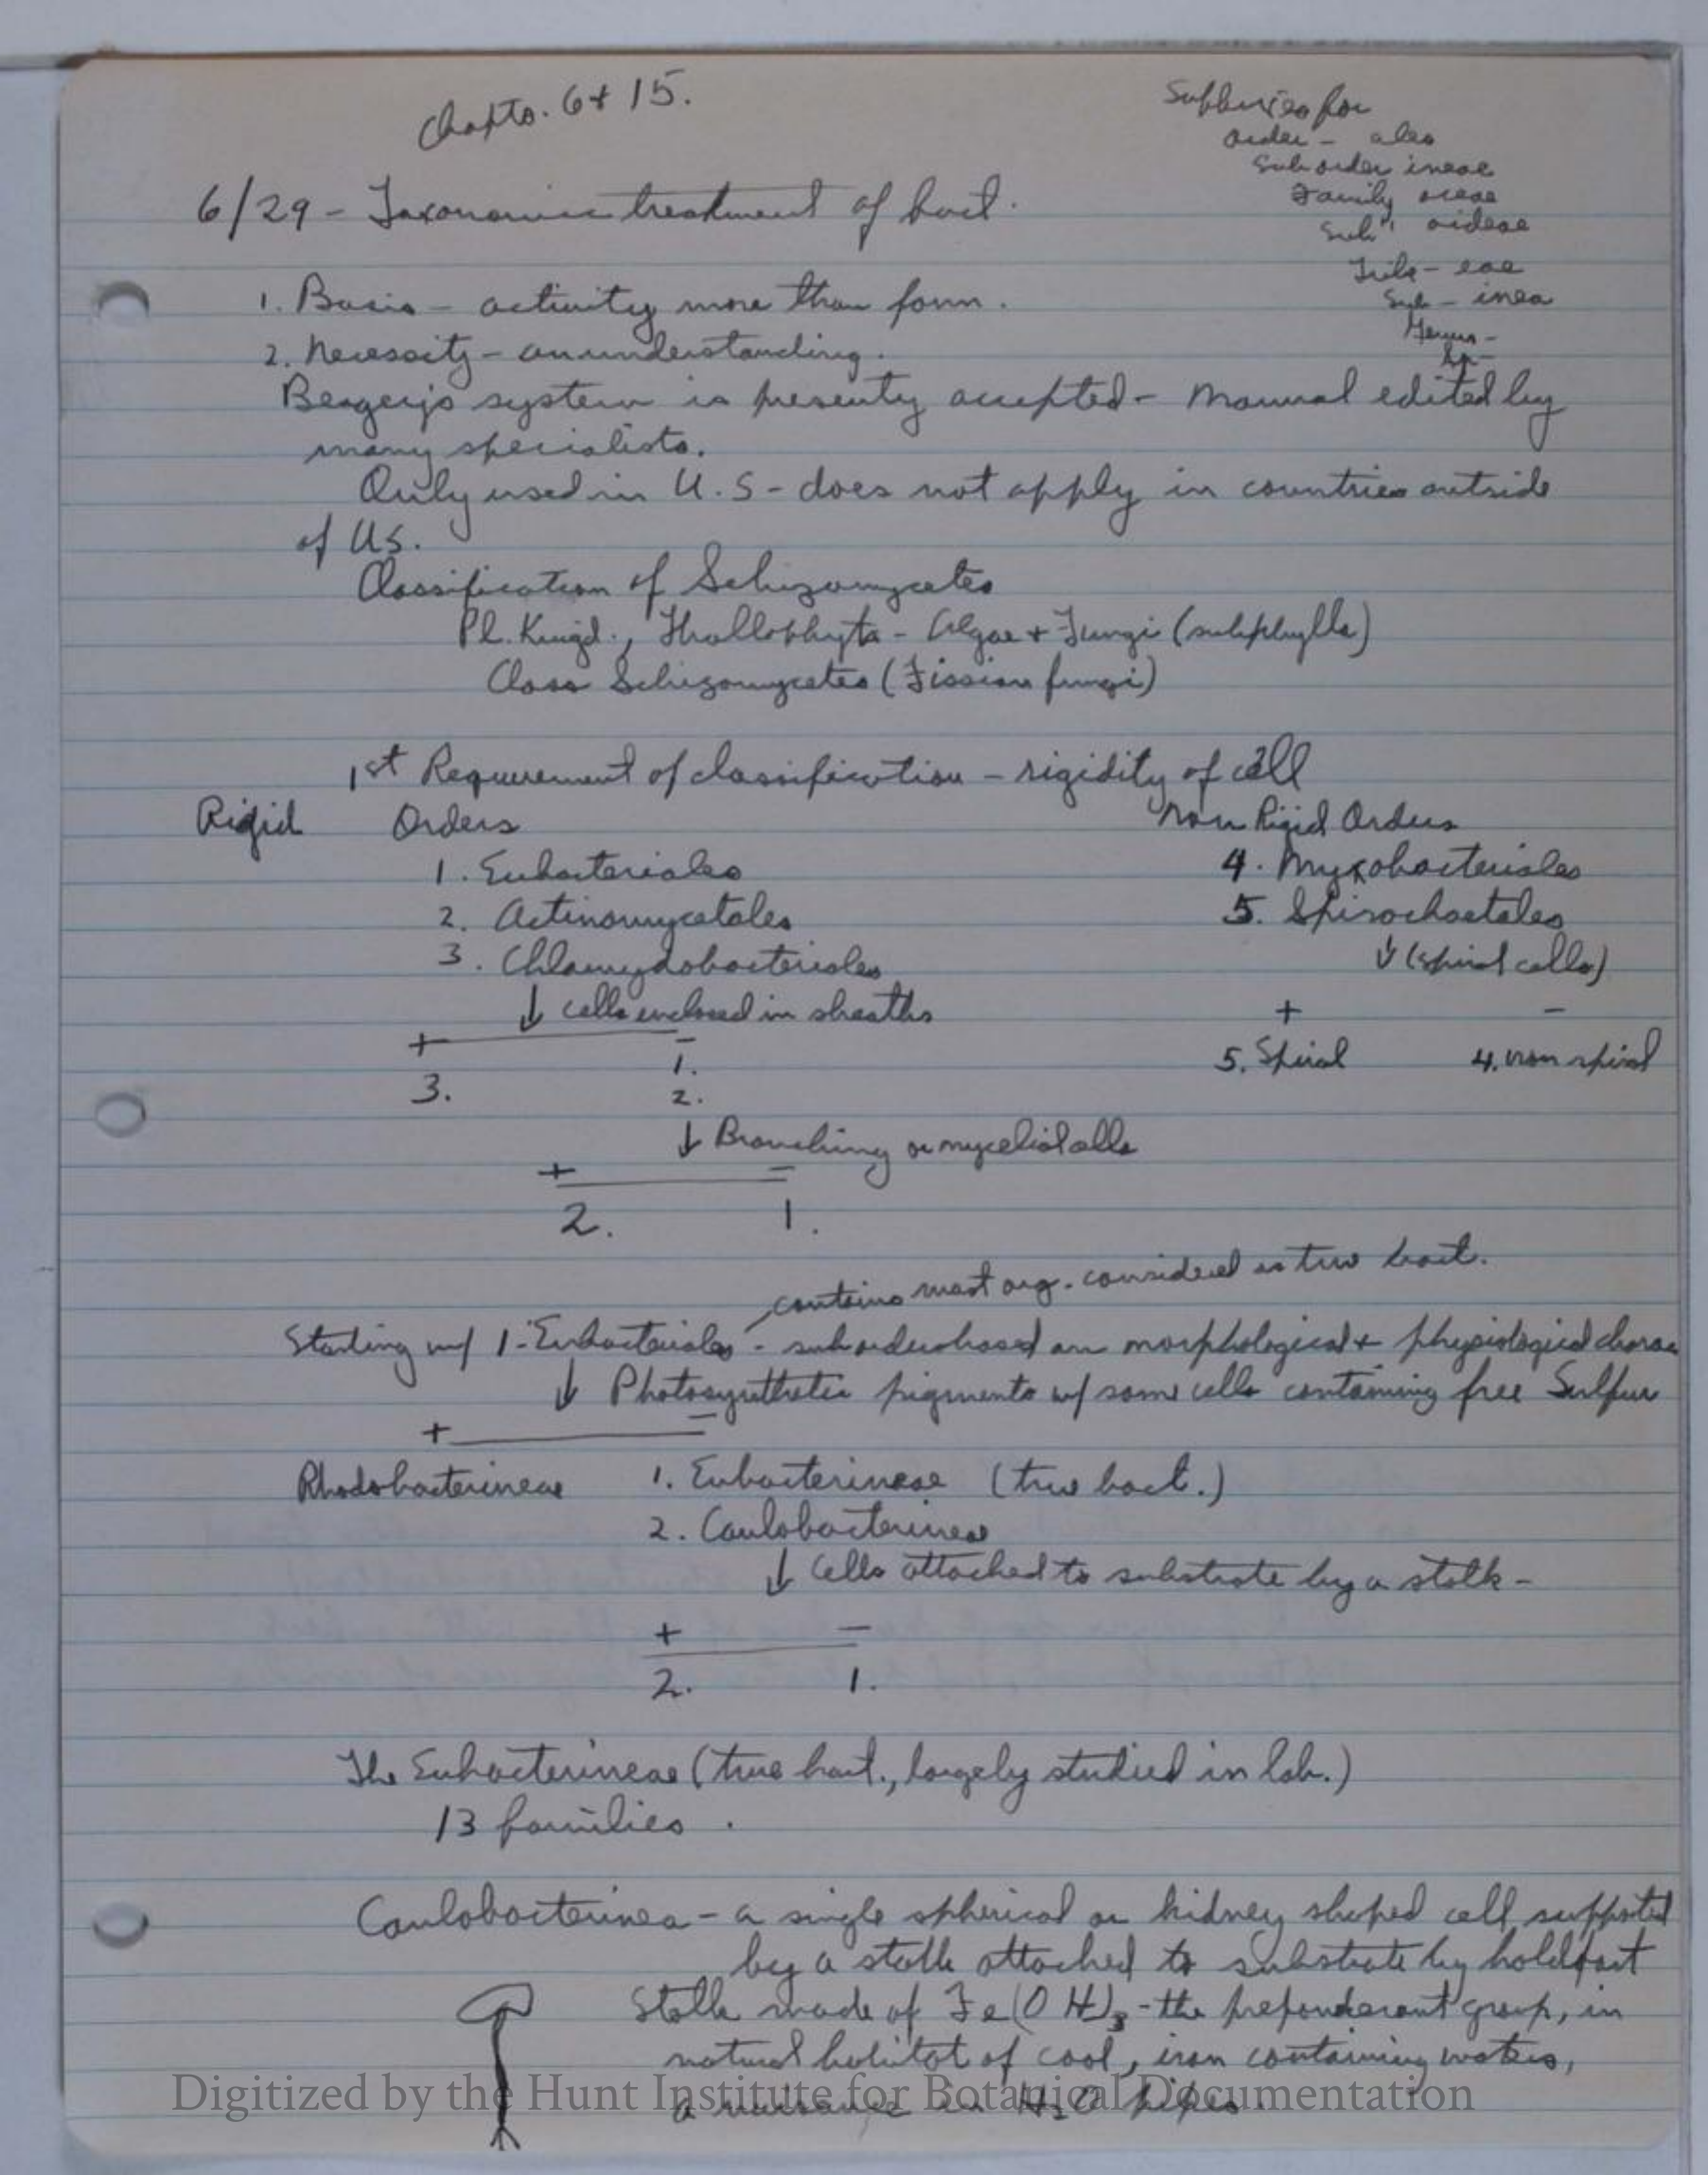 Chapts. 6+ 15.
Suffixes for
Order - ales
Sub order ineae
Family aceae
Sub " oideae
Tribe - eae
Sub - inea
Genus -
Sp -
6/29 - Taxonomic treatment of bact.
1. Basis - activity more than form.
2. Necessity - an understanding.
Bergey's system is presently accepted - Manual edited by
many specialists.
Only used in U.S - does not apply in countries outside
of US.
Classification of Schizomycetes
Pl. Kingd., Thallophyta - Algae + Fungi (subphylla)
Class Schizomycetes (Fission fungi)
1st Requirement of classification - rigidity of cell
Rigid Orders
Non Rigid Orders
1. Eubacteriales
4. Myxobacteriales
2. Actinomycetales
5. Spirochaetales
3. Chlamydobacteriales
↓ (spiral cells)
↓ cells enclosed in sheaths
+ -
+ -
5. Spiral 4. non spiral
3. 1.
2.
↓ Branching or mycelial cells
+ -
2. 1.
contains most org. considered as true bact.
Starting w/ 1-Eubacteriales - suborders based on morphological + physiological charac
↓ Photosynthetic pigments w/ some cells containing free Sulfur
+ -
Rhodobacterineae 1. Eubacterineae (true bact.)
2. Caulobacterineae
↓ Cells attached to substrate by a stalk -
+ -
2. 1.
The Eubacterineae (true bact., largely studied in lab.)
13 families.
Caulobacterinea - a single spherical or kidney shaped cell, supported
by a stalk attached to substrate by holdfast
Stalk made of Fe(OH)3 - the preponderant group, in
natural habitat of cool, iron containing waters,
a nuisance in H2O pipes.
Digitized by the Hunt Institute for Botanical Documentation